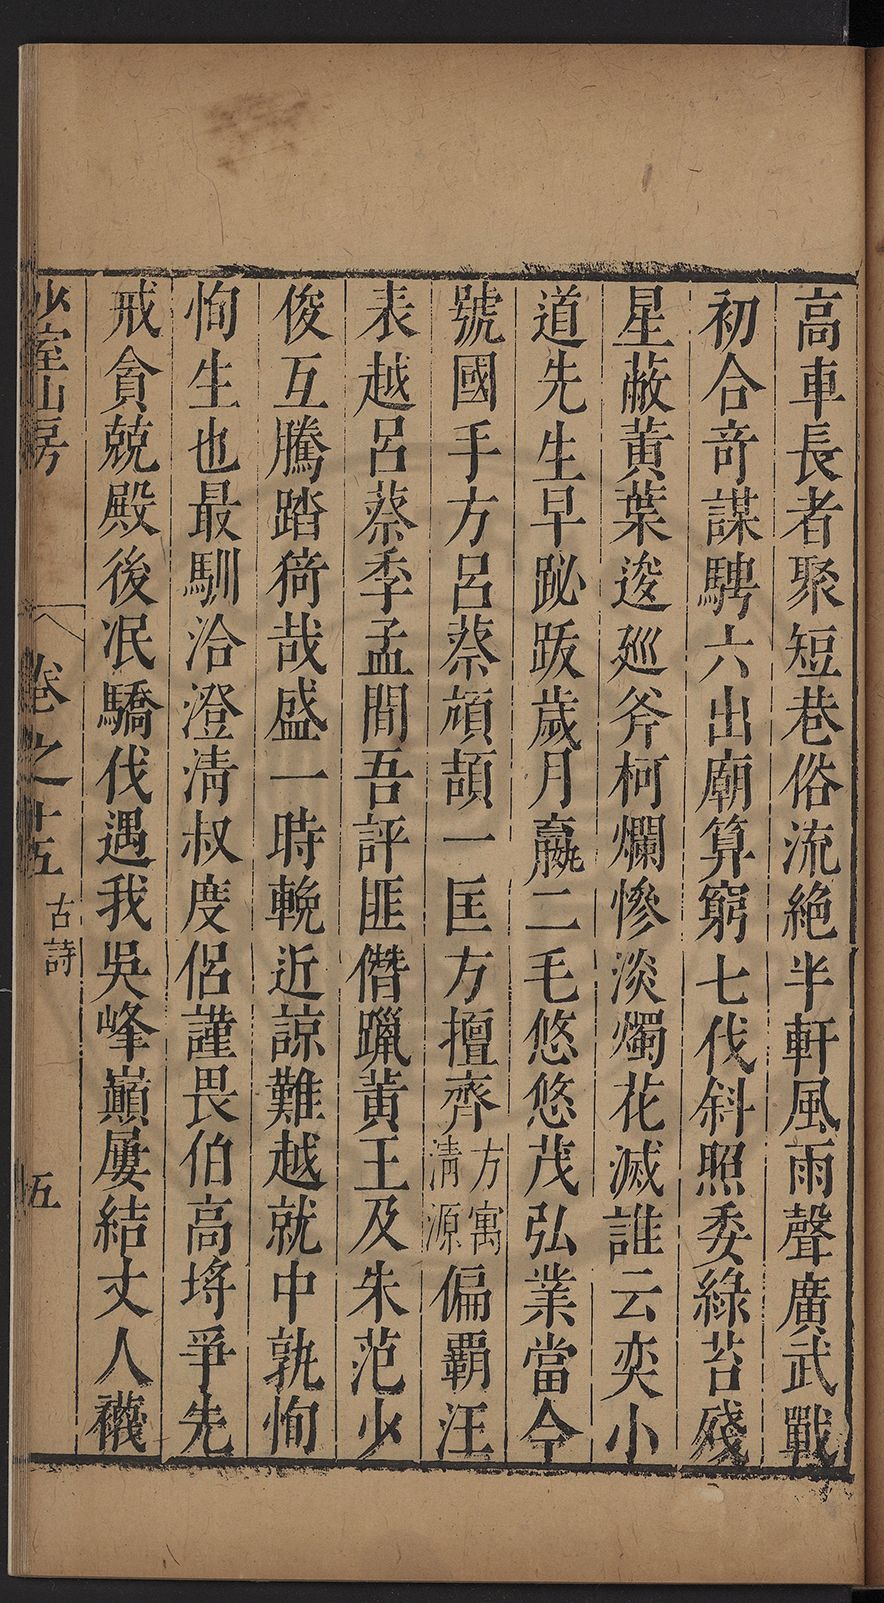 高車長者聚短巷俗流絶半軒風雨聲廣武戰
初合竒謀騁六出廟算窮七伐斜照委綠苔殘
星蔽黄葉逡廵斧柯爛慘淡燭花滅誰云奕小
道先生早跡䟦歲月嬴二毛悠悠茂弘業當今
號國手方呂蔡頏頡一匡方擅齊方寓清源偏覇汪
表越呂蔡季孟間吾評匪僭躐黄王及朱范少
俊互騰踏猗哉盛一時輓近諒難越就中孰恂
恂生也最馴洽澄清叔度侣謹畏伯高埓爭先
戒貪兢殿後泯驕伐遇我吳峰巔屢結丈人襪
少室山房 卷之十五 古詩 五